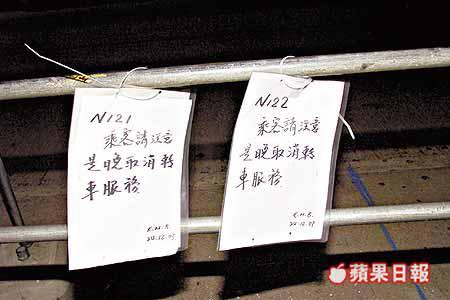 N121
乘客請注意
是晚取消轉
車服務
K.M.B.
24.12.07
N122
乘客請注意
是晚取消轉
車服務
K.M.B.
24.12.07
蘋果日報